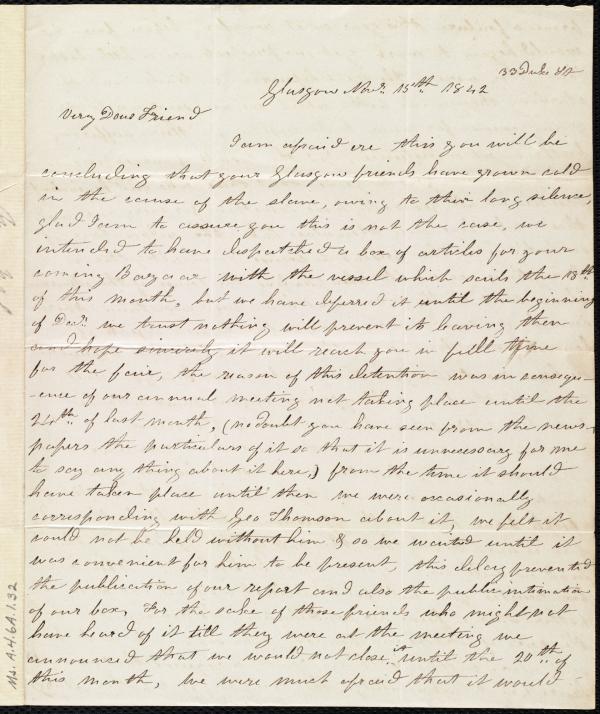 33 Duke St
Glasgow Novr. 15th. 1842
Very Dear Friend
I am afraid ere this you will be
concluding that your Glasgow friends have grown cold
in the cause of the slave, owing to their long silence,
glad I am to assure you this is not the case, we
intended to have despatched a box of articles for your
coming Bazaar with the vessel which sails the 18th
of this month, but we have deferred it until the beginning
of Decr. we trust nothing will prevent its leaving then
and hope sincerely it will reach you in full time
for the fair, the reason of this detention was in consequ-
-ence of our annual meeting not taking place until the
24th of last month, (no doubt you have seen from the news-
papers the particulars of it so that it is unnecessary for me
to say any thing about it here,) from the time it should
have taken place until then we were occasionally
corresponding with Geo Thomson about it, we felt it
could not be held without him & so we waited until it
was convenient for him to be present, this delay prevented
the publication of our report and also the public intimation
of our box, For the sake of those friends who might not
have heard of it till they were at the meeting we
announced that we would not close it until the 20th of
this month, we were much afraid that it would
Ms. A.4.6A.1.32